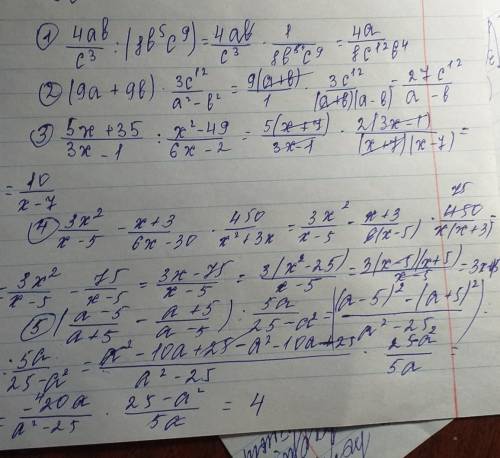 ① 4ab/c³ : (8b⁵c⁹) = 4ab/c³ · 1/8b⁵c⁹ = 4a/8c¹²b⁴
② (9a + 9b) · 3c¹²/a² - b² = 9(a+b)/1 · 3c¹²/(a+b)(a-b) = 27c¹²/a - b
③ 5x + 35/3x - 1 : x² - 49/6x - 2 = 5(x+7)/3x-1 · 2(3x-1)/(x+7)(x-7) =
= 10/x-7
④ 3x²/x-5 - x+3/6x-30 · 450/x²+3x = 3x²/x-5 - x+3/6(x-5) · 450/x(x+3) = 75
= 3x²/x-5 - 75/x-5 = 3x-75/x-5 = 3(x²-25)/x-5 = 3(x-5)(x+5)/x-5 = 3x+15
⑤ (a-5/a+5 - a+5/a-5) : 5a/25-a² = ((a-5)² - (a+5)²/a²-25) :
: 5a/25-a² = a²-10a+25-a²-10a+25/a²-25 · 25-a²/5a =
= -20a/a²-25 · 25-a²/5a = 4